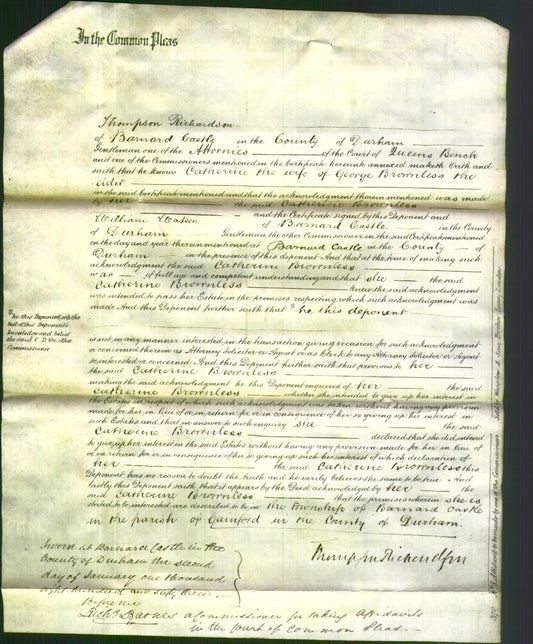 In the Common Pleas
Thompson Richardson
of Barnard Castle in the County of Durham
Gentleman one of the Attornies of the Court of Queens Bench
and one of the Commissioners mentioned in the Certificate hereunto annexed maketh Oath and
saith that he knows Catherine the wife of George Brownless the
elder
in the said Certificate mentioned and that the acknowledgment therein mentioned was made
by her the said Catherine Brownless
and the Certificate signed by this Deponent and
William Watson of Barnard Castle in the County
of Durham Gentleman the other Commissioner in the said Certificate mentioned
on the day and year therein mentioned at Barnard Castle in the County of
Durham in the presence of this deponent And that at the time of making such
acknowledgment the said Catherine Brownless
was of full age and competent understanding and that she the said
Catherine Brownless knew the said acknowledgment
was intended to pass her Estate in the premises respecting which such acknowledgment was
made And this Deponent further saith that he this deponent
he this Deponent, or to the
best of this Deponents
knowledge and belief
the said C D the other
Commissioner
is not in any manner interested in the transaction giving occasion for such acknowledgment
or concerned therein as Attorney Solicitor or Agent or as Clerk to any Attorney Solicitor or Agent
so interested or concerned And this Deponent further saith that previous to her
the said Catherine Brownless
making the said acknowledgment he this Deponent enquired of her the said
Catherine Brownless whether she intended to give up her interest in
the Estates in respect of which such acknowledgment was taken without having any provision
made for her in lieu of or in return for or in consequence of her so giving up her interest in
such Estates and that in answer to such enquiry she the said
Catherine Brownless declared that she did intend
to give up her interest in the said Estates without having any provision made for her in lieu of
or in return for or in consequence of her so giving up such her interest of which declaration of
her the said Catherine Brownless this
Deponent has no reason to doubt the truth and he verily believes the same to be true And
lastly this Deponent saith that it appears by the Deed acknowledged by her the
said Catherine Brownless that the premises wherein she is
stated to be interested are described to be in the township of Barnard Castle
in the parish of Gainford in the County of Durham.
Sworn at Barnard Castle in the
County of Durham the second
day of January one thousand
eight hundred and sixty three
Before me
Thompson Richardson
Richd. Barnes a Commissioner for taking Affidavits
in the Court of Common Pleas.